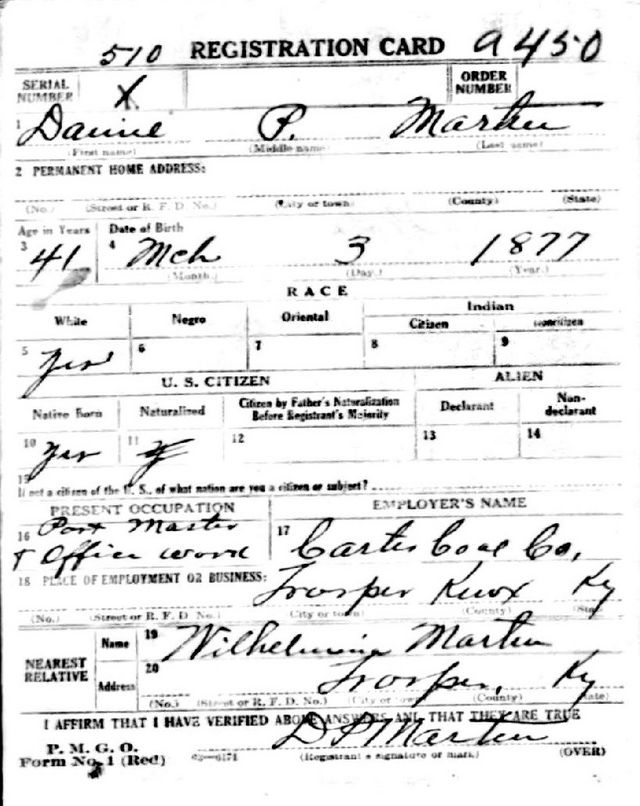 510 REGISTRATION CARD A450
SERIAL NUMBER X ORDER NUMBER
1 Dannie P. Martin
(First name) (Middle name) (Last name)
2 PERMANENT HOME ADDRESS:
(No.) (Street or R. F. D. No.) (City or town) (County) (State)
Age in Years Date of Birth
3 41 4 Mch 3 1877
(Month.) (Day.) (Year.)
RACE
White Negro Oriental Indian
Citizen Noncitizen
5 Yes 6 7 8 9
U. S. CITIZEN ALIEN
Native Born Naturalized Citizen by Father's Naturalization Before Registrant's Majority Declarant Non-declarant
10 Yes 11 12 13 14
15
If not a citizen of the U. S., of what nation are you a citizen or subject?
PRESENT OCCUPATION EMPLOYER'S NAME
16 Post Master
& Office work 17 Carter Coal Co.
18 PLACE OF EMPLOYMENT OR BUSINESS:
Trosper Knox Ky
(No.) (Street or R. F. D. No.) (City or town) (County) (State)
NEAREST RELATIVE Name 19 Wilhelmina Martin
Address 20 Trosper, Ky
(No.) (Street or R. F. D. No.) (City or town) (County) (State)
I AFFIRM THAT I HAVE VERIFIED ABOVE ANSWERS AND THAT THEY ARE TRUE
D P Martin
P. M. G. O.
Form No. 1 (Red) (Registrant's signature or mark) (OVER)